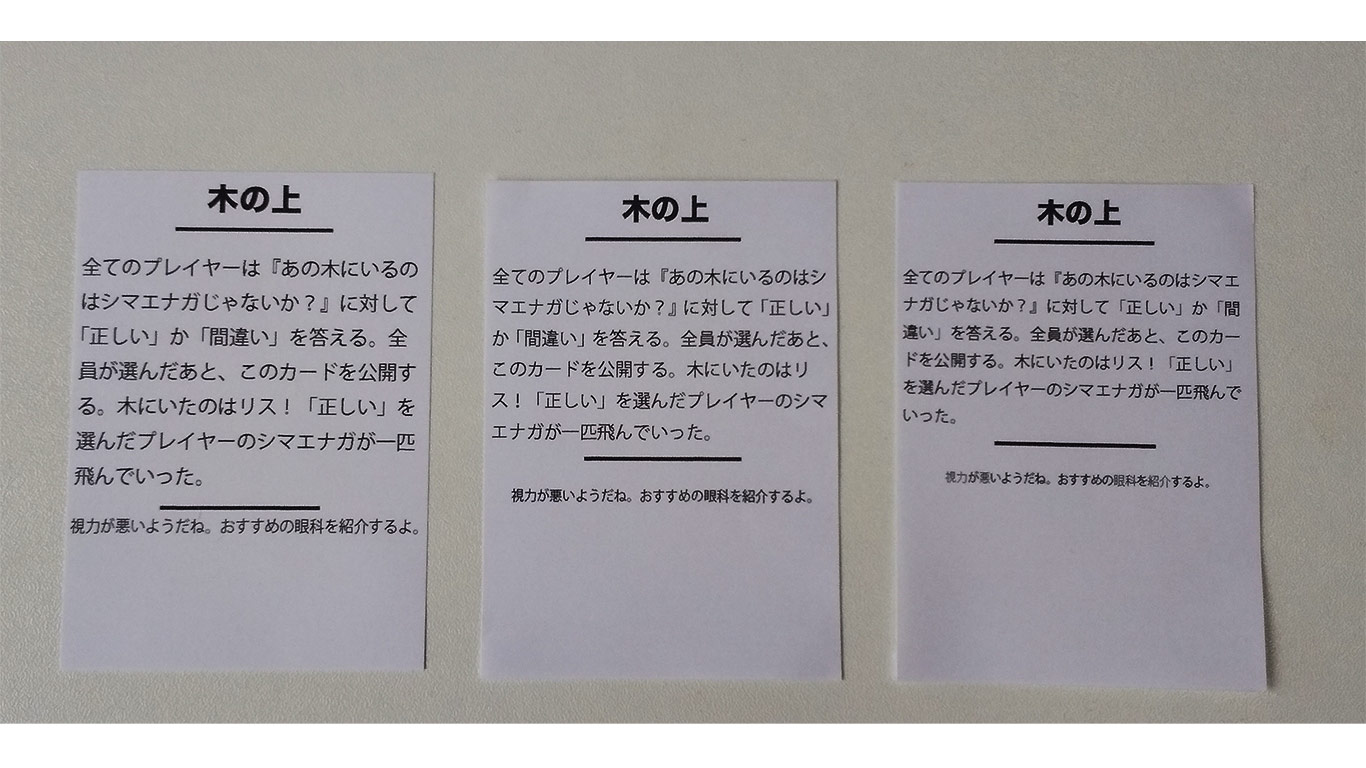 木の上
全てのプレイヤーは『あの木にいるの
はシマエナガじゃないか？』に対して
「正しい」か「間違い」を答える。全
員が選んだあと、このカードを公開す
る。木にいたのはリス！「正しい」を
選んだプレイヤーのシマエナガが一匹
飛んでいった。
視力が悪いようだね。おすすめの眼科を紹介するよ。
木の上
全てのプレイヤーは『あの木にいるのはシ
マエナガじゃないか？』に対して「正しい」
か「間違い」を答える。全員が選んだあと、
このカードを公開する。木にいたのはリ
ス！「正しい」を選んだプレイヤーのシマ
エナガが一匹飛んでいった。
視力が悪いようだね。おすすめの眼科を紹介するよ。
木の上
全てのプレイヤーは『あの木にいるのはシマエ
ナガじゃないか？』に対して「正しい」か「間
違い」を答える。全員が選んだあと、このカー
ドを公開する。木にいたのはリス！「正しい」
を選んだプレイヤーのシマエナガが一匹飛んで
いった。
視力が悪いようだね。おすすめの眼科を紹介するよ。